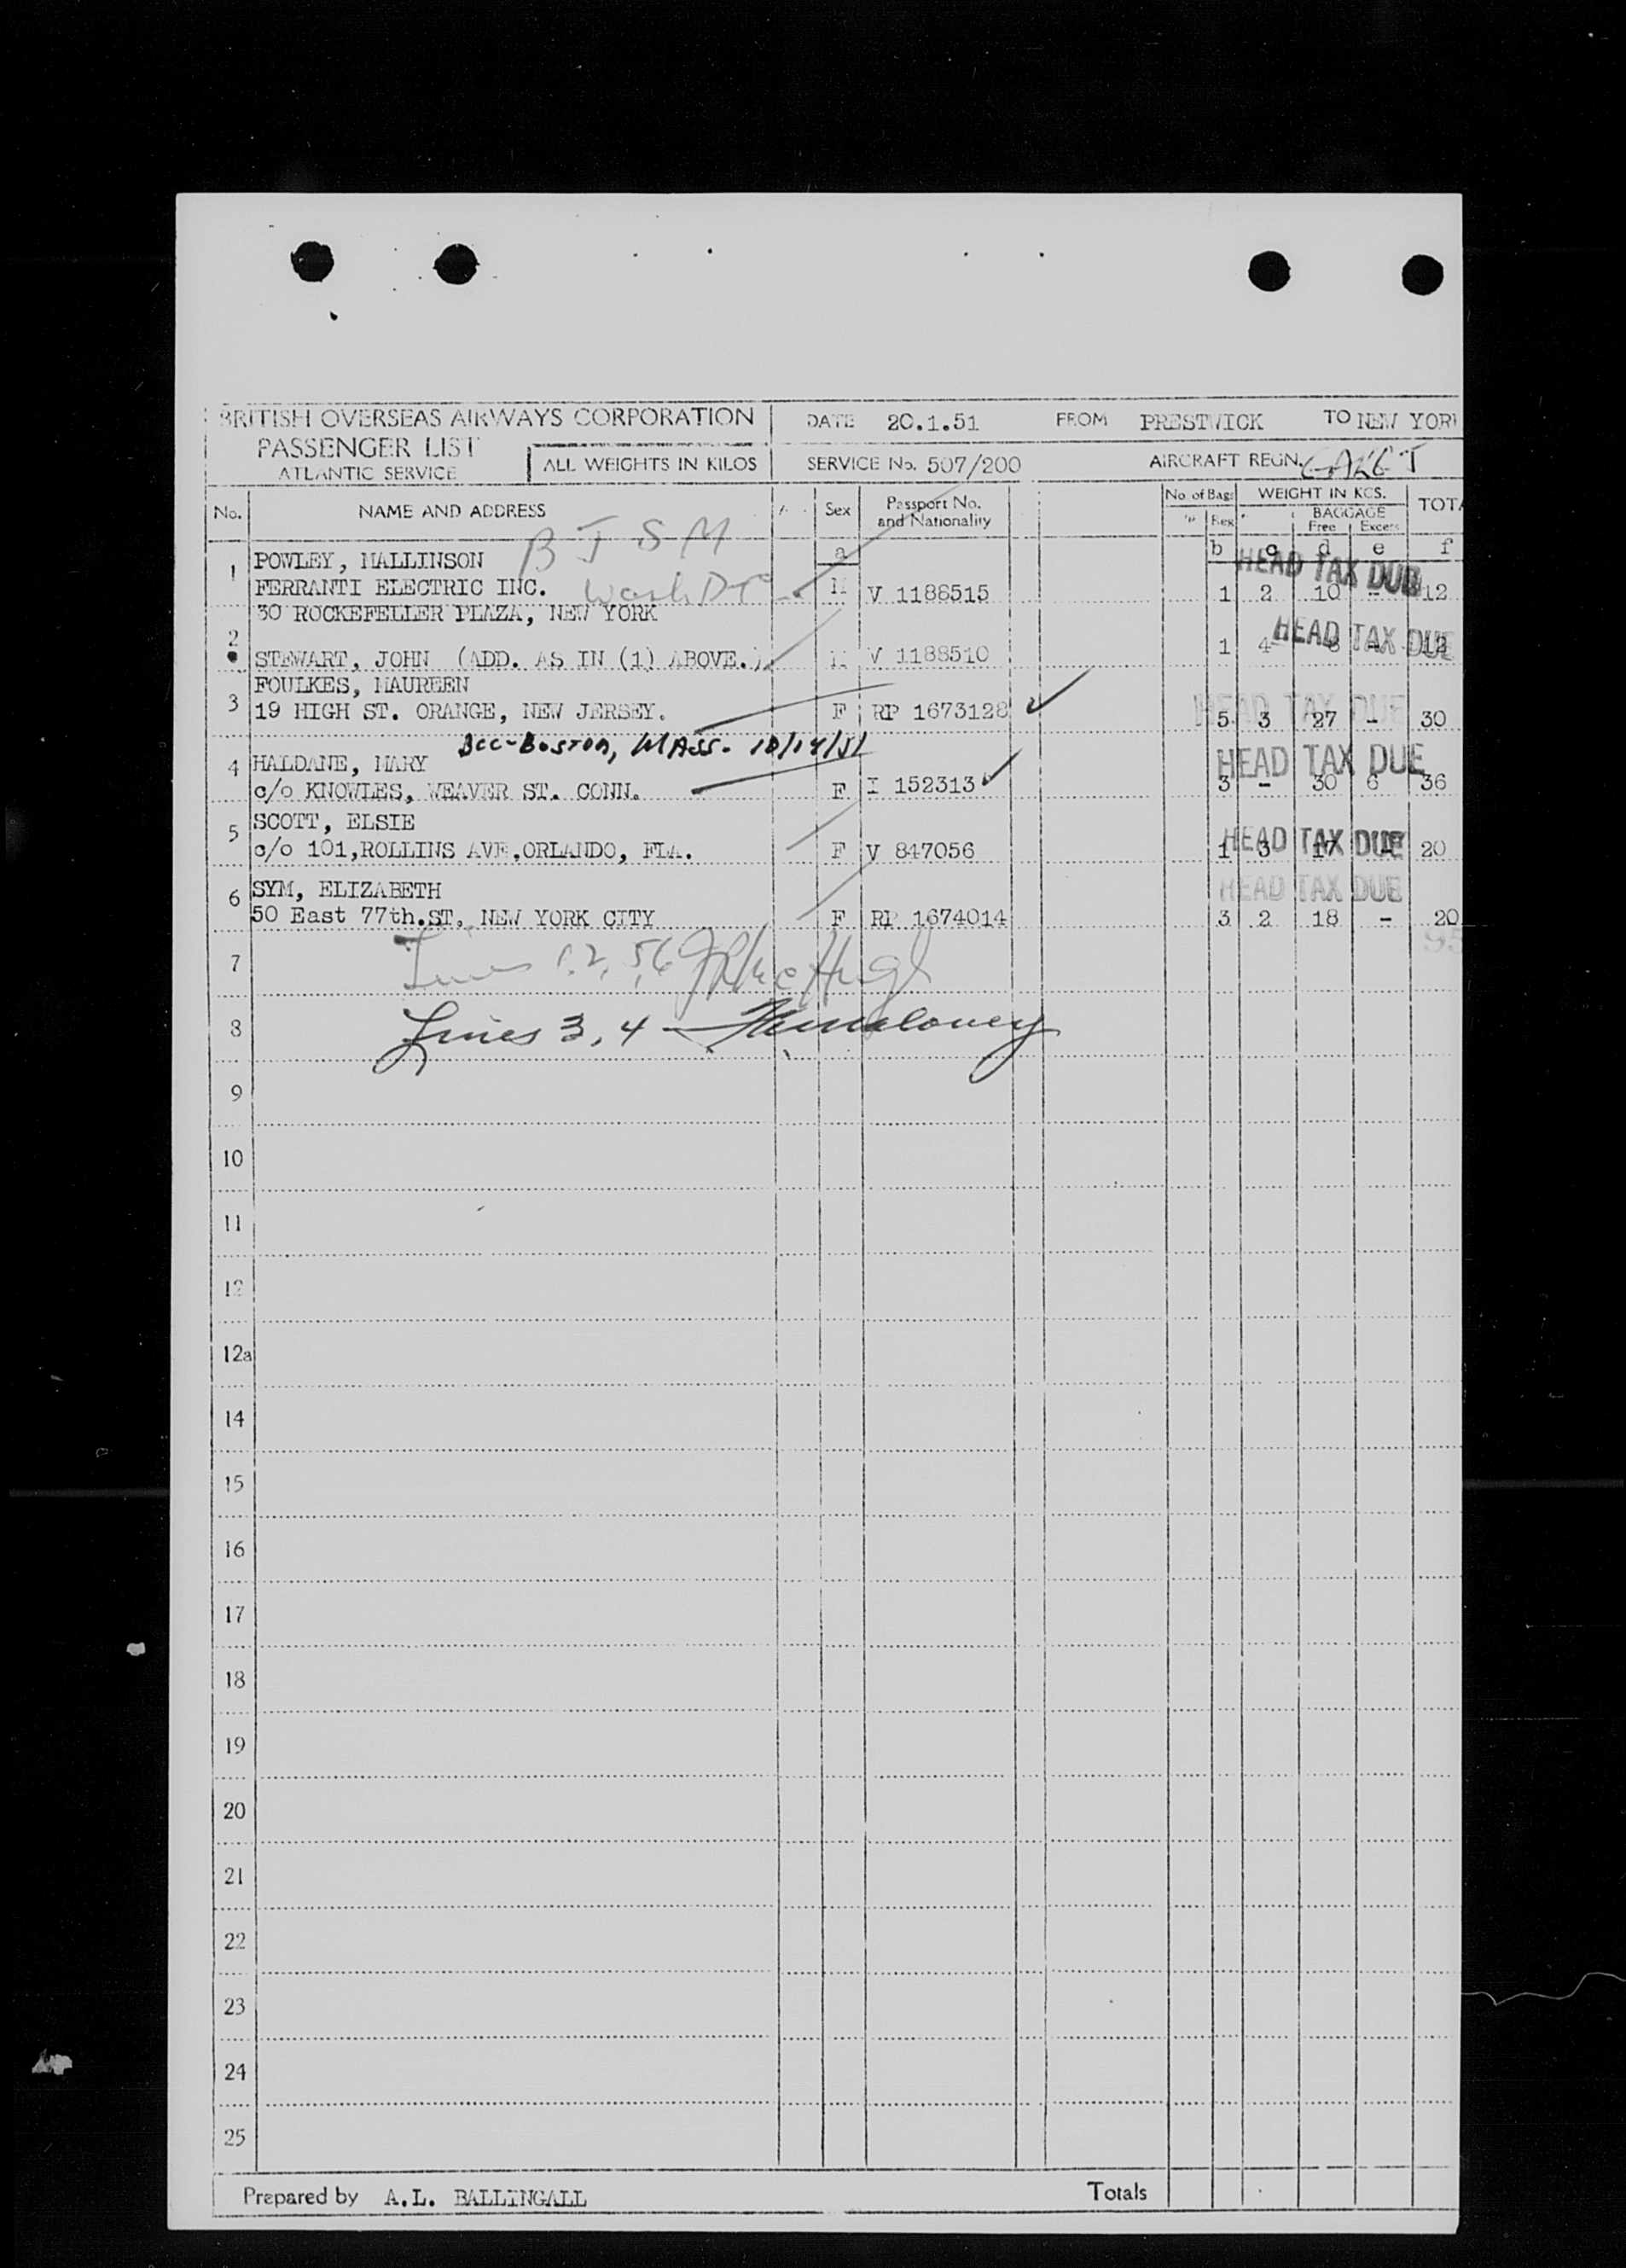 BRITISH OVERSEAS AIRWAYS CORPORATION DATE 20.1.51 FROM PRESTWICK TO NEW YORK
PASSENGER LIST
ATLANTIC SERVICE ALL WEIGHTS IN KILOS SERVICE No. 507/200 AIRCRAFT REGN.
No. NAME AND ADDRESS Sex Passport No. and Nationality No. of Bags WEIGHT IN KGS. TOTA
BAGGAGE
Free Excess
B J S M
a b c d e f
1 POWLEY, MALLINSON HEAD TAX DUE
FERRANTI ELECTRIC INC. Wash DC M V 1188515 1 2 10 - 12
30 ROCKEFELLER PLAZA, NEW YORK
2 HEAD TAX DUE
STEWART, JOHN (ADD. AS IN (1) ABOVE.) M V 1188510 1 4 8 - 12
FOULKES, MAUREEN
3 19 HIGH ST. ORANGE, NEW JERSEY. F RP 1673128 5 3 27 - 30
HEAD TAX DUE
Boston, Mass.
4 HALDANE, MARY HEAD TAX DUE
c/o KNOWLES, WEAVER ST. CONN. F I 152313 3 - 30 6 36
5 SCOTT, ELSIE HEAD TAX DUE
c/o 101,ROLLINS AVE,ORLANDO, FLA. F V 847056 1 3 17 - 20
6 SYM, ELIZABETH HEAD TAX DUE
50 East 77th.ST, NEW YORK CITY F RP 1674014 3 2 18 - 20
7 Lines 1, 2, 5, 6
8 Lines 3, 4 -
9
10
11
12
12a
14
15
16
17
18
19
20
21
22
23
24
25
Prepared by A.L. BALLINGALL Totals